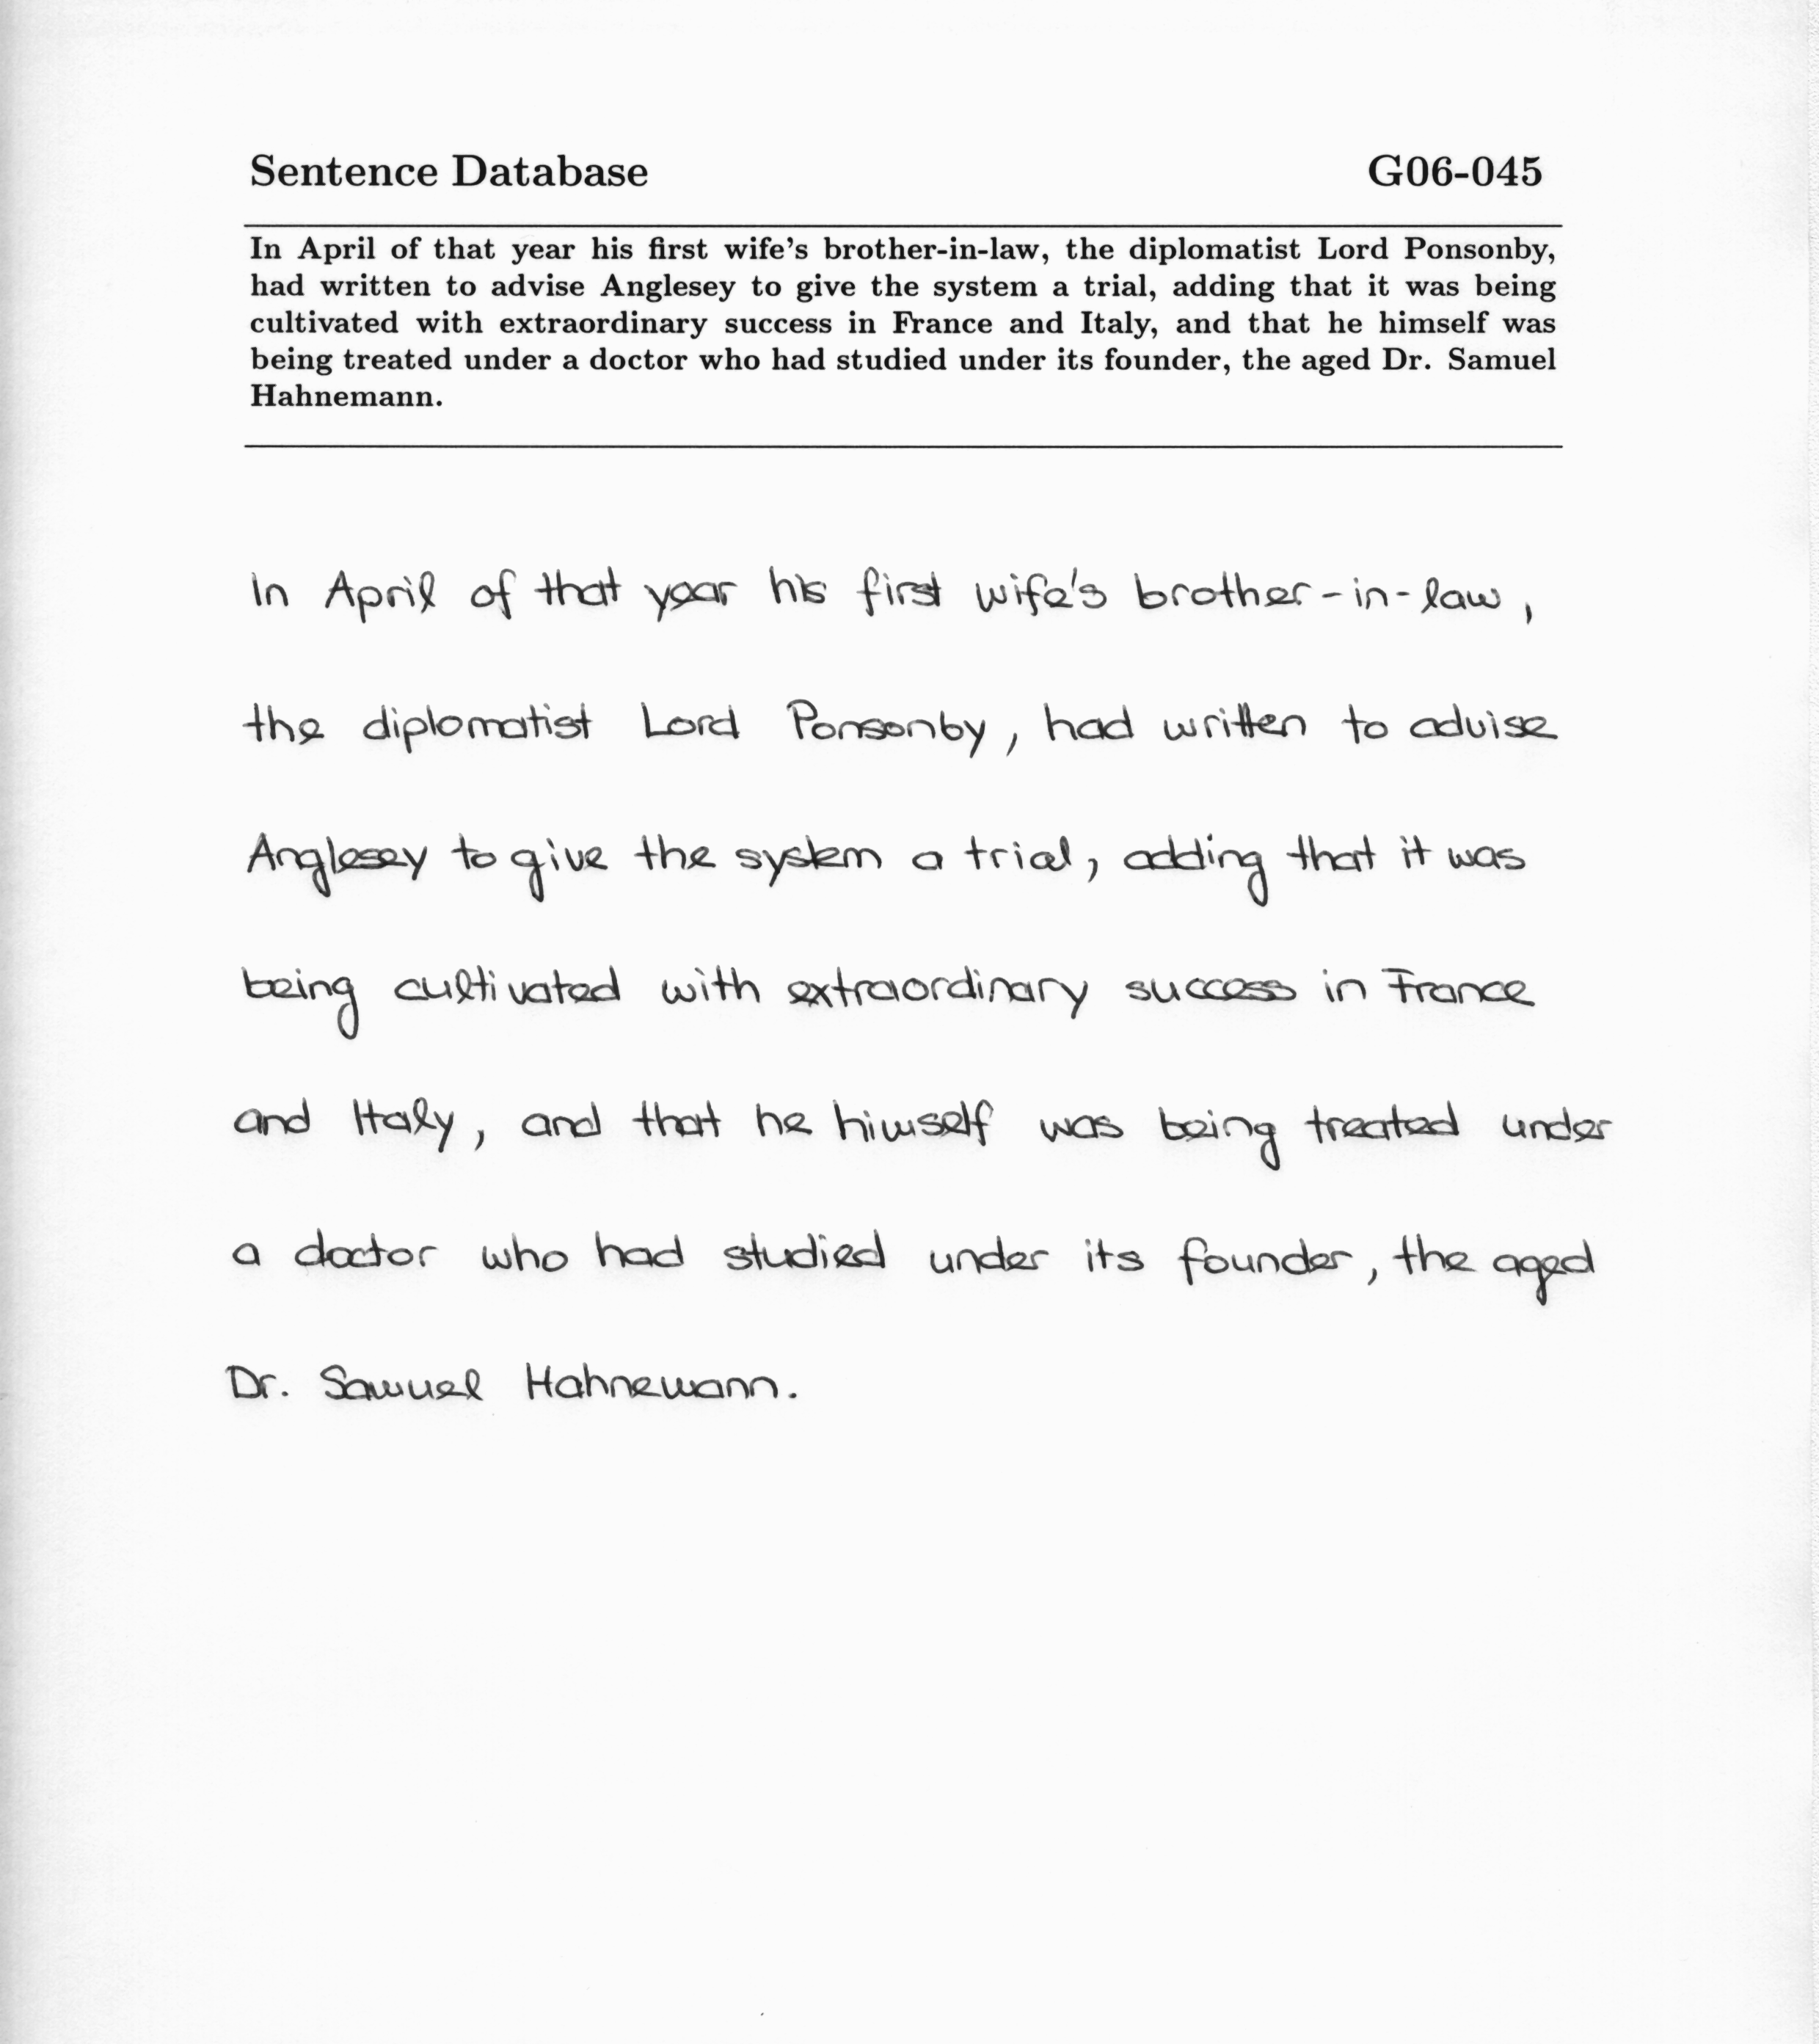 Sentence Database G06-045
In April of that year his first wife's brother-in-law, the diplomatist Lord Ponsonby,
had written to advise Anglesey to give the system a trial, adding that it was being
cultivated with extraordinary success in France and Italy, and that he himself was
being treated under a doctor who had studied under its founder, the aged Dr. Samuel
Hahnemann.
In April of that year his first wife's brother-in-law,
the diplomatist Lord Ponsonby, had written to advise
Anglesey to give the system a trial, adding that it was
being cultivated with extraordinary success in France
and Italy, and that he himself was being treated under
a doctor who had studied under its founder, the aged
Dr. Samuel Hahnemann.